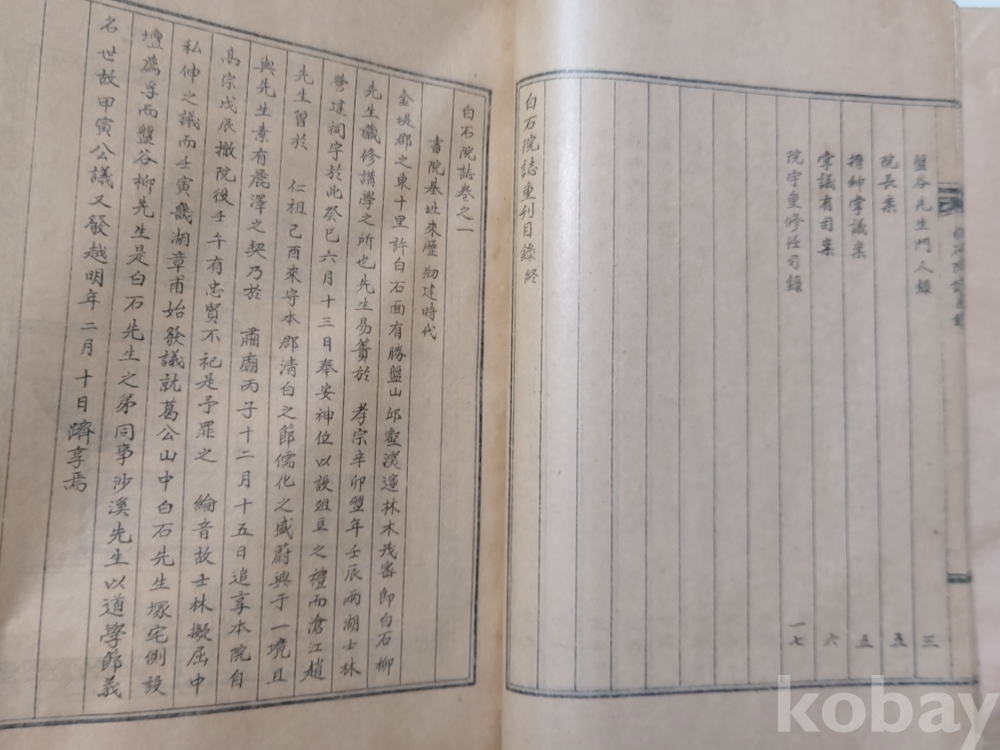 盤谷先生門人錄 三
院長案 五
搢紳掌議案 五
掌議有司案 六
院宇重修任司錄 一七
白石院誌重刊目錄終
白石院誌卷之一
書院基址來歷 刱建時代
金堤郡之東十里許白石面有勝盤山邱壑溪邃林木茂密卽白石柳
先生藏修講學之所也先生易簀於 孝宗辛卯翌年壬辰兩湖士林
營建祠宇於此癸巳六月十三日奉安神位以設俎豆之禮而滄江趙
先生曾於 仁祖己酉來守本郡淸白之節儒化之盛蔚興于一境且
與先生素有麗澤之契乃於 肅廟丙子十二月十五日追享本院自
高宗戊辰撤院後壬午有忠賢不祀是予罪之 綸音故士林擬屈中
私伸之議而壬寅畿湖章甫始發議就葛公山中白石先生塚宅側設
壇爲享而盤谷柳先生是白石先生之弟同事沙溪先生以道學節義
名世故甲寅公議又發越明年二月十日躋享焉
kobay